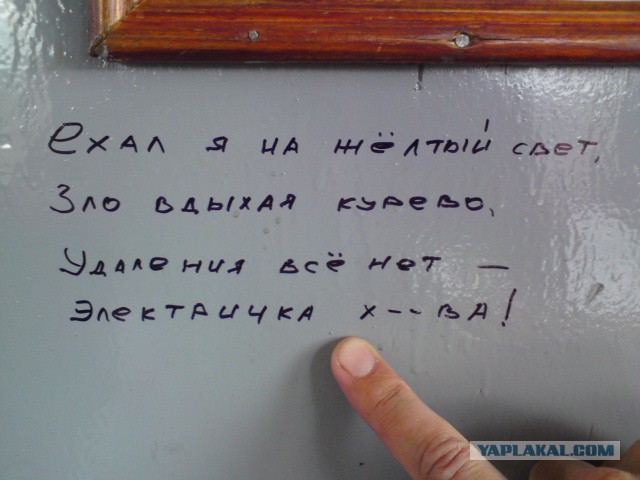 Ехал я на жёлтый свет,
Зло вдыхая курево,
Удаления всё нет —
Электричка х--ва!
YAPLAKAL.COM